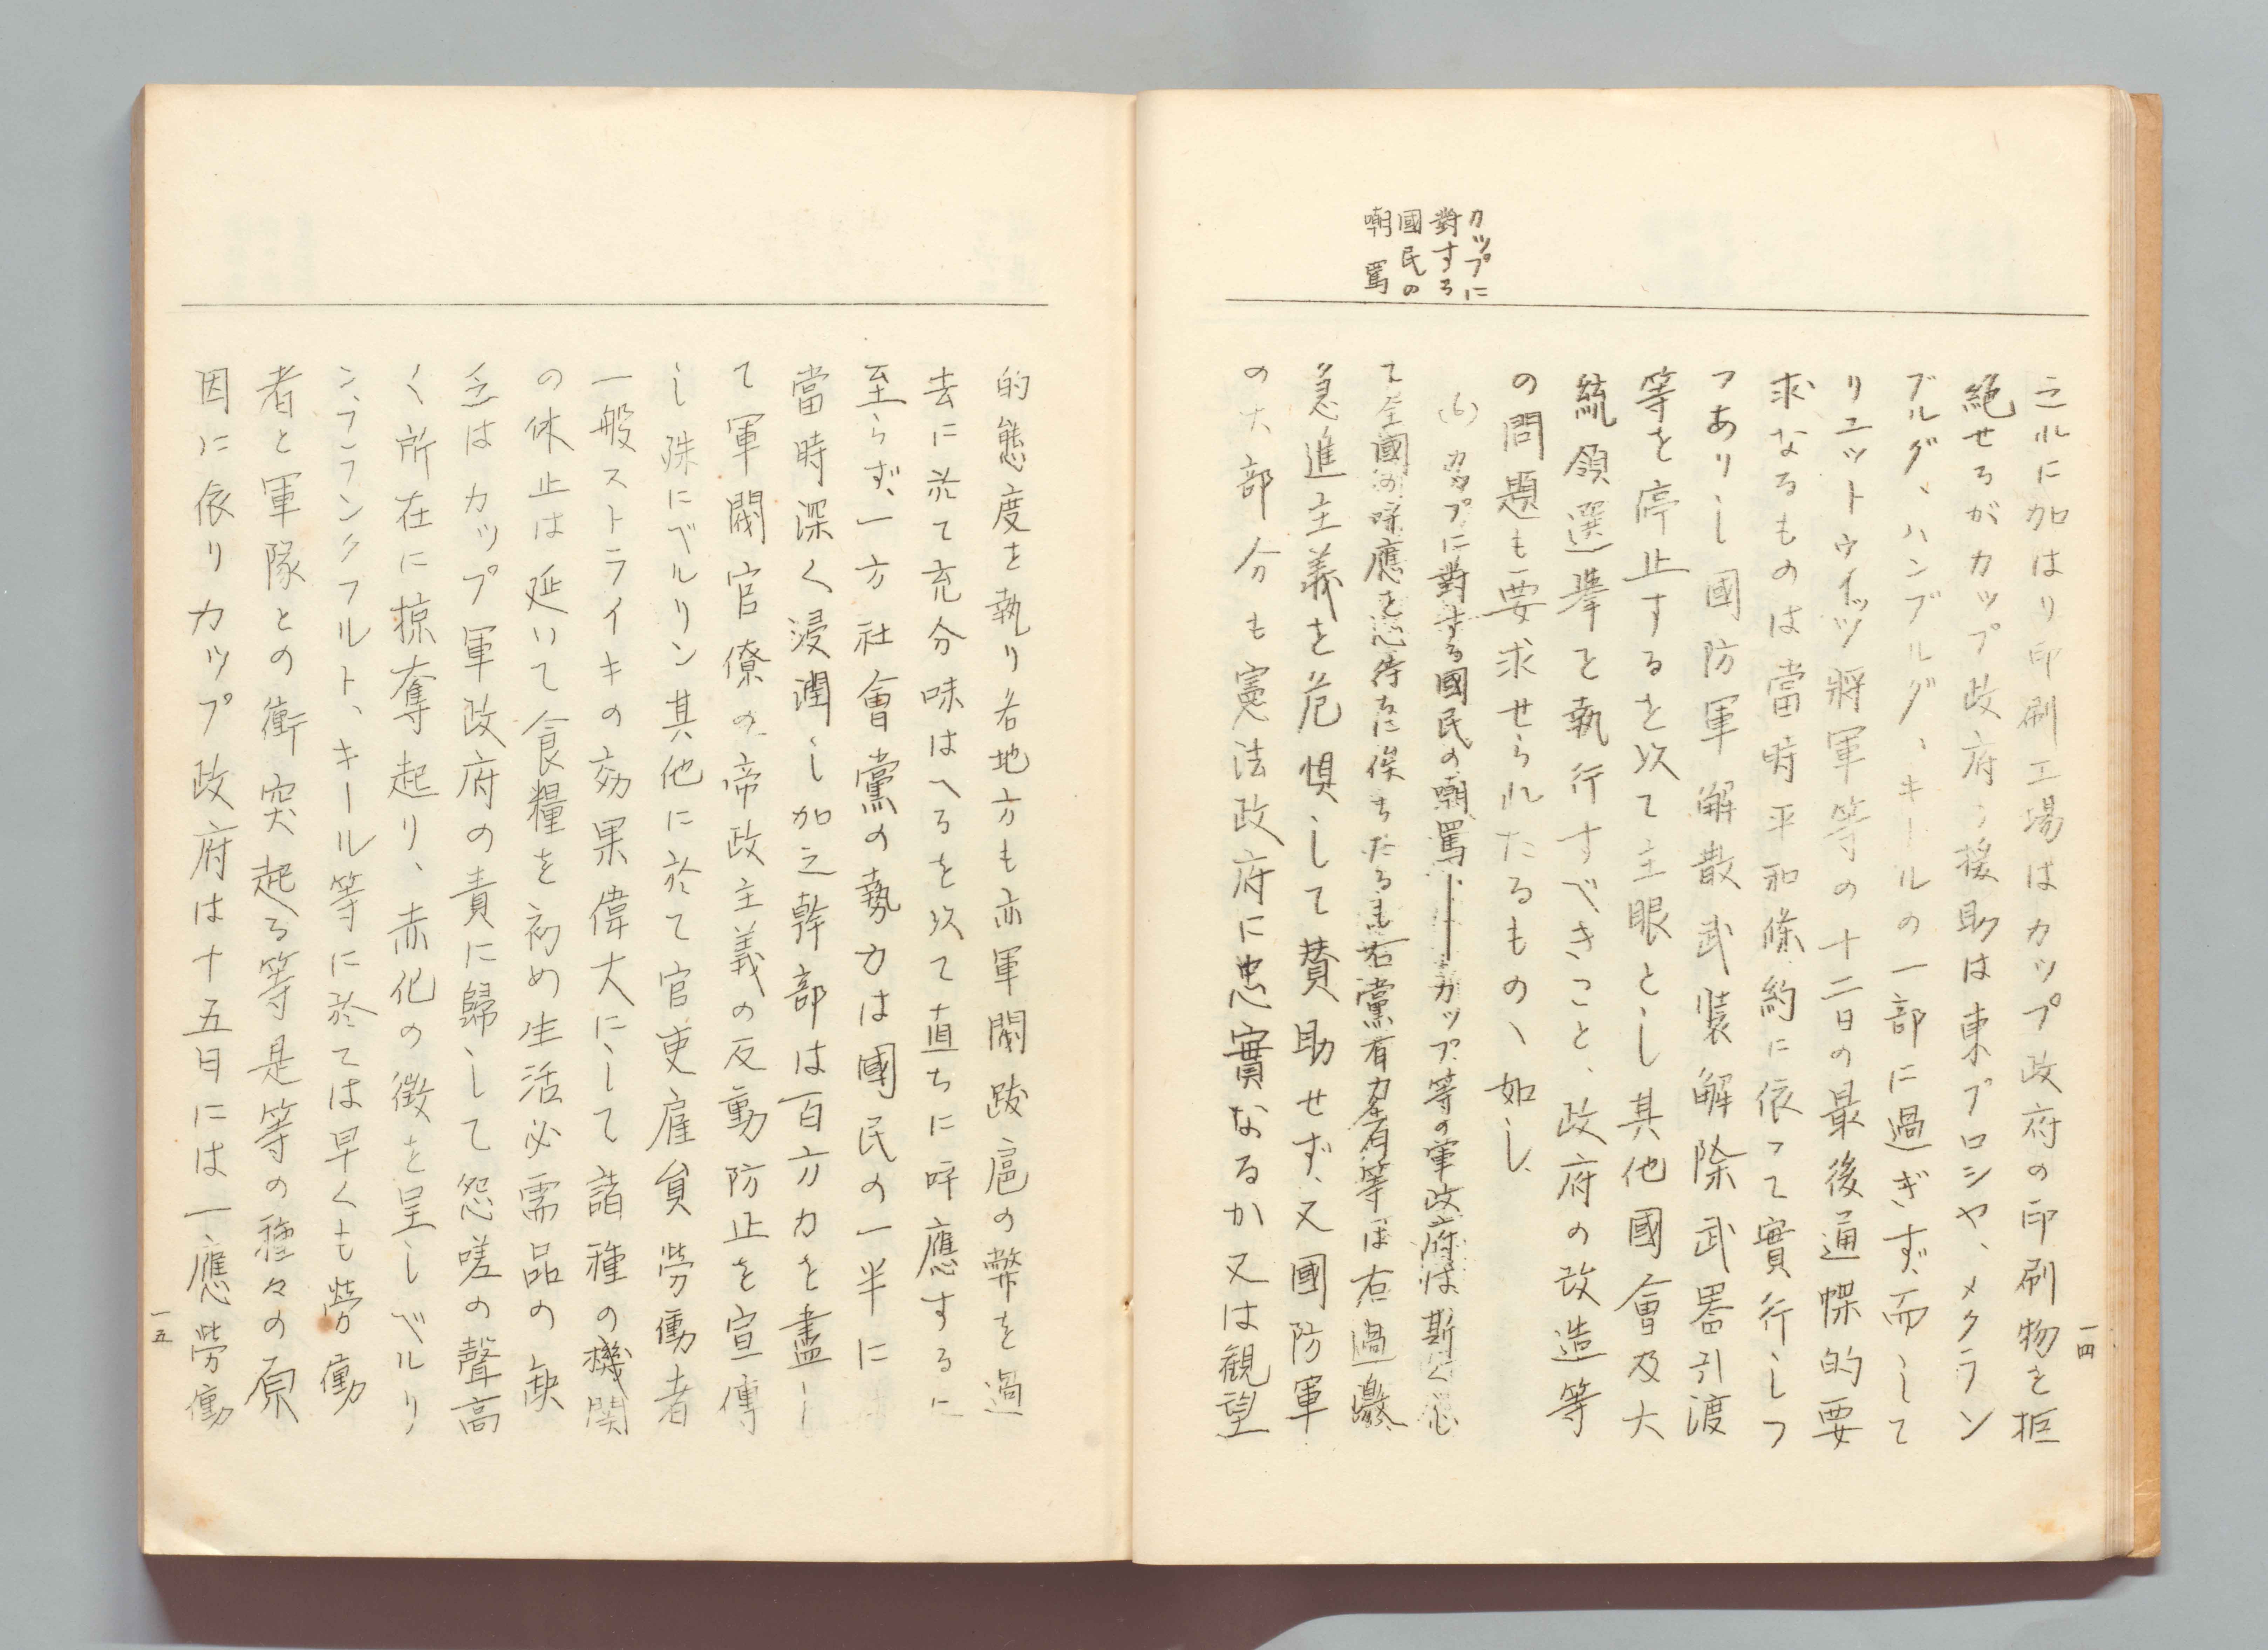 一四
カップに
對する
國民の
嘲罵
之れに加はり印刷工場はカップ政府の印刷物を拒
絶せるがカップ政府の援助は東プロシヤ、メクラン
ブルグ、ハンブルグ、キールの一部に過ぎず、而して
リユットウイッツ將軍等の十二日の最後通牒的要
求なるものは當時平和條約に依つて實行しつ
つありし國防軍解散武裝解除武器引渡
等を停止するを以て主眼とし其他國會及大
統領選擧を執行すべきこと、政府の改造等
の問題も要求せられたるものゝ如し、
(6) カップに對する國民の嘲罵――カップ等の軍政府は斯く
て全國の呼應を俟ちたるも右黨有力者等は右過激
急進主義を危惧して賛助せず、又國防軍
の大部分も憲法政府に忠實なるか又は観望
的態度を執り各地方も亦軍閥跋扈の弊を過
去に於て充分味はへるを以て直ちに呼應するに
至らず、一方社會黨の勢力は國民の一半に
當時深く浸潤し加之幹部は百方力を盡し
て軍閥官僚の帝政主義の反動防止を宣傳
し殊にベルリン其他に於て官吏雇員勞働者
一般ストライキの効果偉大にして諸種の機関
の休止は延いて食糧を初め生活必需品の缺
乏はカップ軍政府の責に歸して怨嗟の聲高
く所在に掠奪起り、赤化の徴を呈しベルリ
ン、フランクフルト、キール等に於ては早くも勞働
者と軍隊との衝突起る等是等の種々の原
因に依りカップ政府は十五日には一應勞働
一五